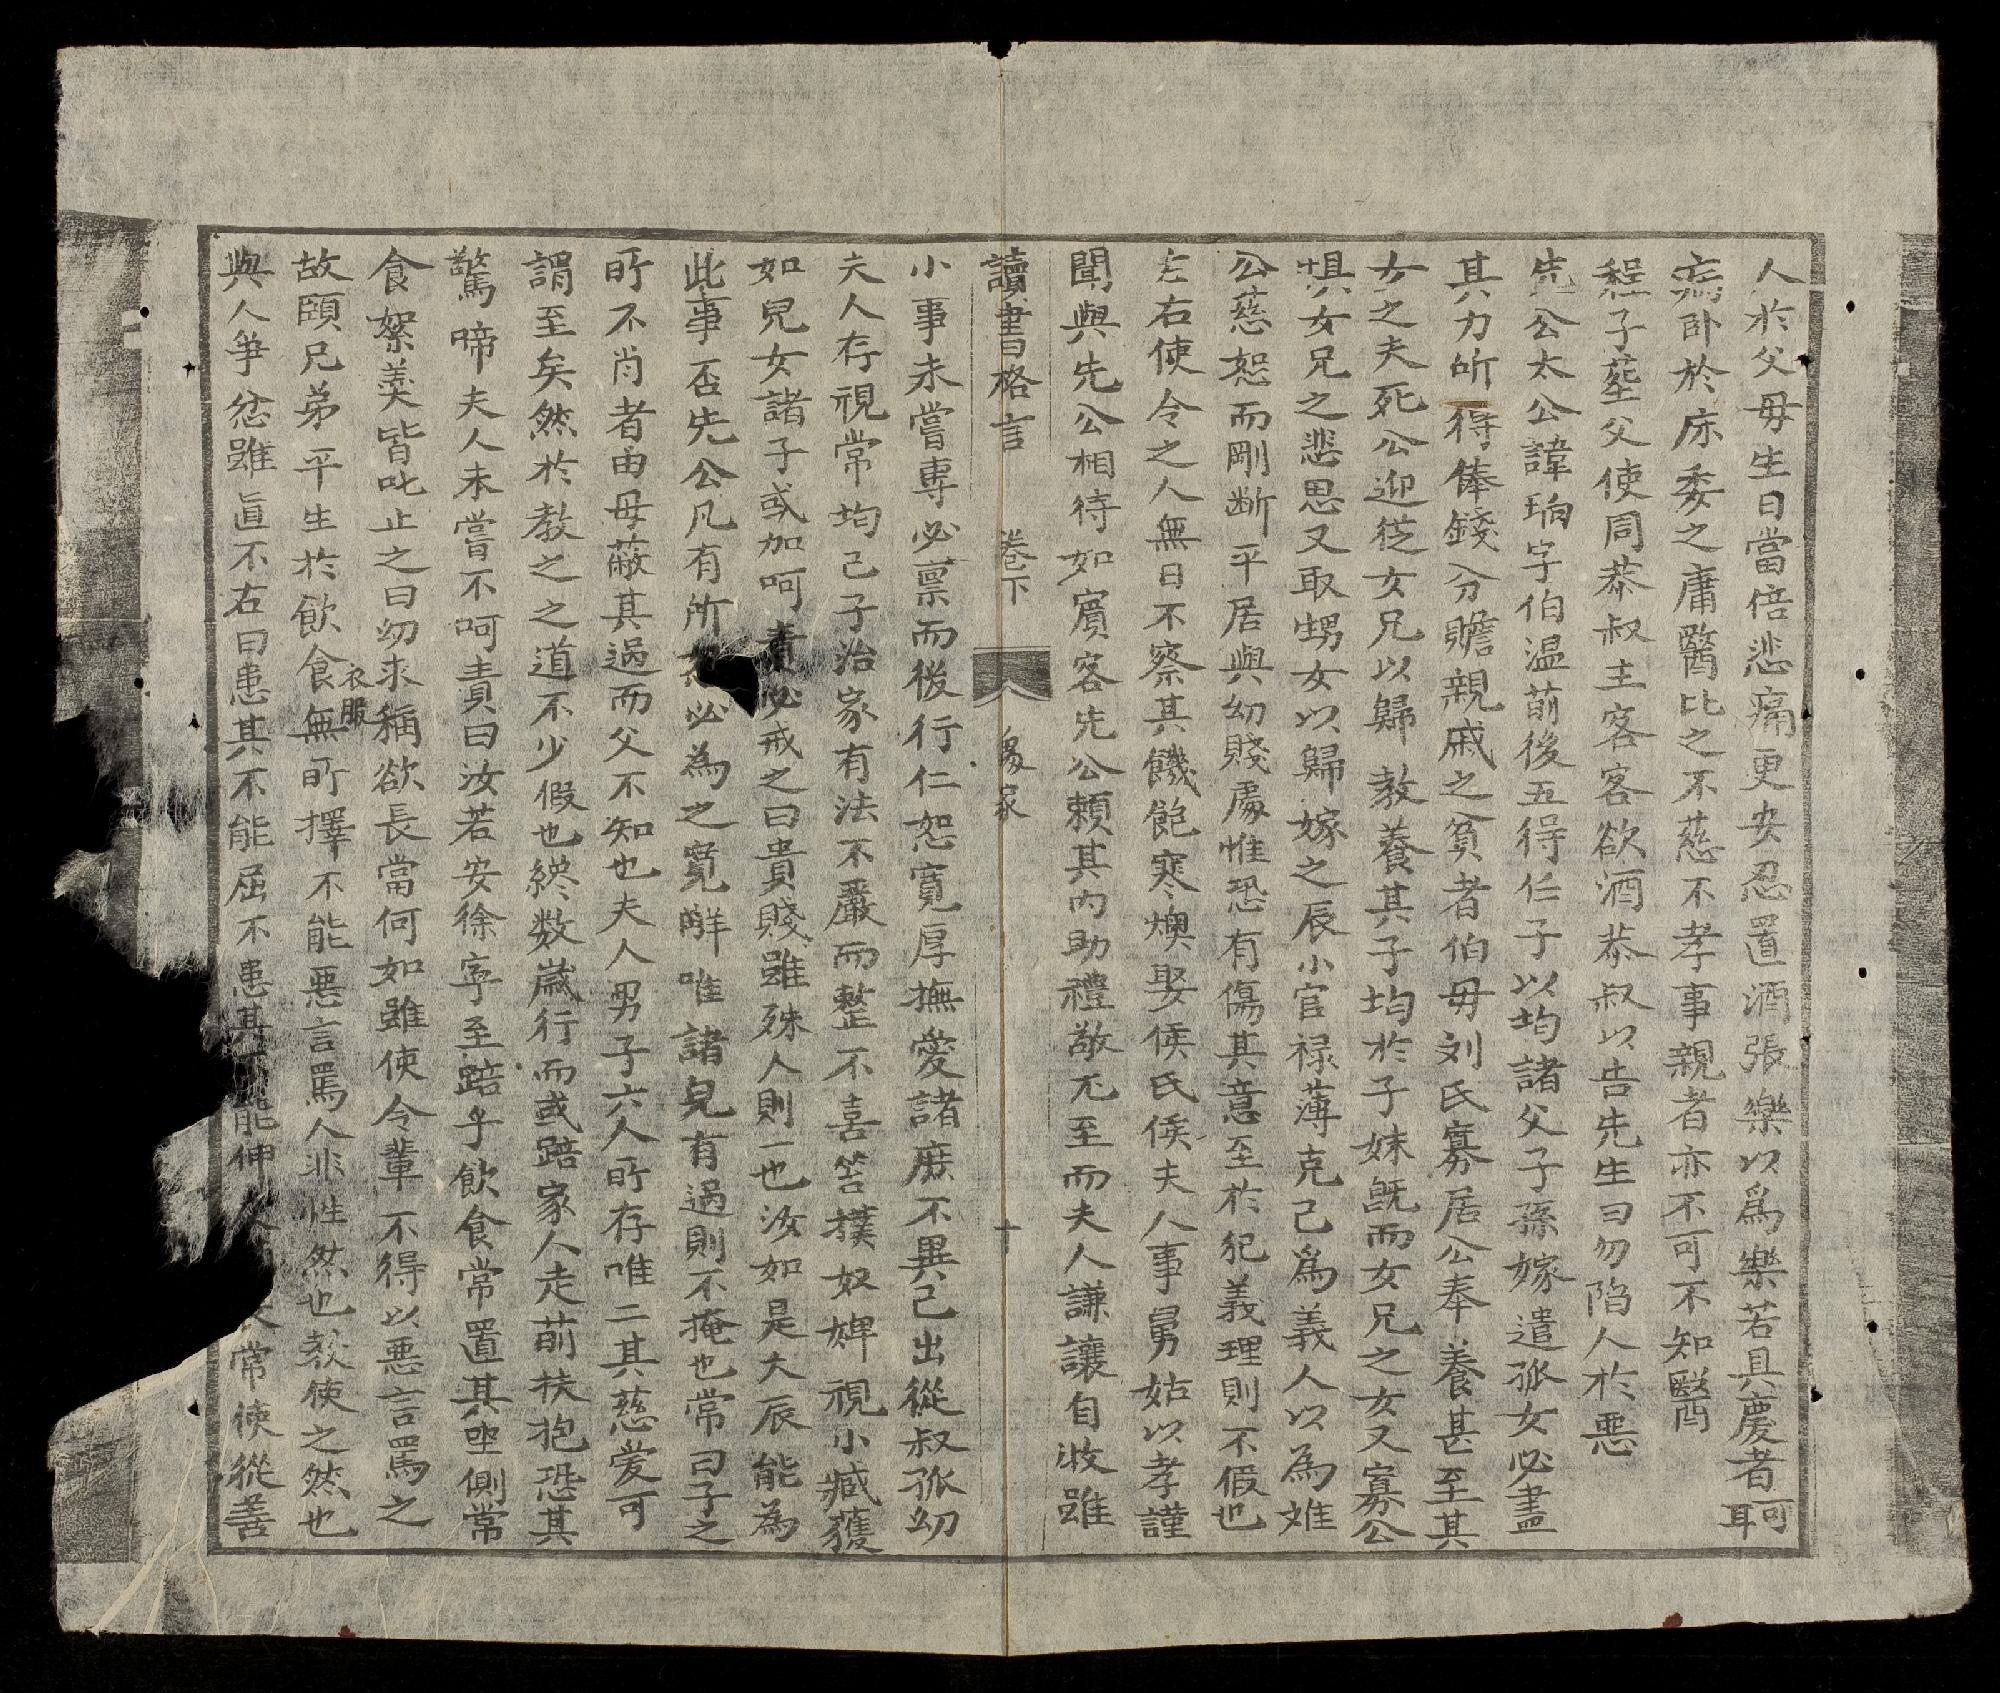 人於父母生日當倍悲痛更安忍置酒張樂以爲樂若具慶者可耳
病卧於床委之庸醫比之不慈不孝事親者亦不可不知醫
程子葬父使同恭叔主客客欲酒恭叔以告先生曰勿陷人於惡
先公太公諱珦字伯温前後五得任子以均諸父子孫嫁遣孤女必盡
其力所得俸錢分贍親戚之貧者伯母刘氏寡居公奉養甚至其
女之夫死公迎從女兄以歸教養其子均於子妹既而女兄之女又寡公
惧女兄之悲思又取甥女以歸嫁之辰小官禄薄克己爲義人以為难
公慈恕而剛断平居與幼賤處惟恐有傷其意至於犯義理則不假也
左右使令之人無日不察其饑飽寒燠娶侯氏侯夫人事舅姑以孝謹
聞與先公相待如賓客先公賴其内助禮敬尤至而夫人謙讓自收雖
讀書格言 卷下 象家 十
小事未嘗專必禀而後行仁恕寛厚撫愛諸庶不異己出從叔孤幼
夫人存視常均己子治家有法不嚴而整不喜笞撲奴婢視小臧獲
如兒女諸子或加呵責必戒之曰貴賤雖殊人則一也汝如是大辰能為
此事否先公凡有所必為之寛解唯諸兒有過則不掩也常曰子之
所不肖者由母蔽其過而父不知也夫人男子六人所存唯二其慈爱可
謂至矣然於教之之道不少假也纔数歳行而或踣家人走前扶抱恐其
驚啼夫人未嘗不呵責曰汝若安徐寜至踣乎飲食常置其坐側常
食絮羹皆叱止之曰幼求稱欲長當何如雖使令輩不得以悪言罵之
故頤兄弟平生於飲食衣服無所擇不能悪言罵人非性然也教使之然也
與人争忿雖直不右曰患其不能屈不患其能伸常使從善